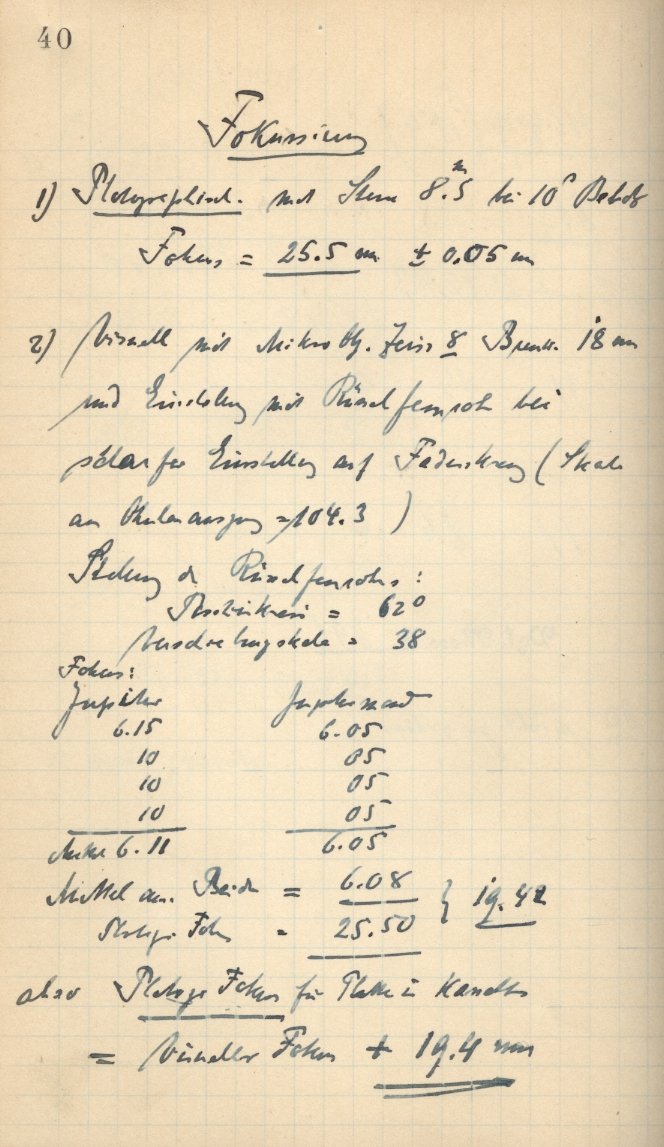 40
Fokussierung
1) Photographisch. mit Stern 8.5 m bei 10 s Belicht
Fokus = 25.5 mm ± 0.05 mm
2) Visuell mit Mikro Obj. Zeiss 8 Brennw. 18 mm
und Einstellung mit Rüssel fernrohr bei
scharfer Einstellung auf Fadenkreuz (Skala
am Okularauszug = 104.3)
Stellung d. Rüsselfernrohrs:
Positionskreis = 62°
Verschiebungskala = 38
Fokus:
Jupiter Jupitermond
6.15 6.05
10 05
10 05
10 05
Mittel 6.11 6.05
Mittel aus Beiden = 6.08 } 19.42
Photogr. Fokus = 25.50
also Photogr Fokus für Platte in Kassette
= Visueller Fokus + 19.4 mm